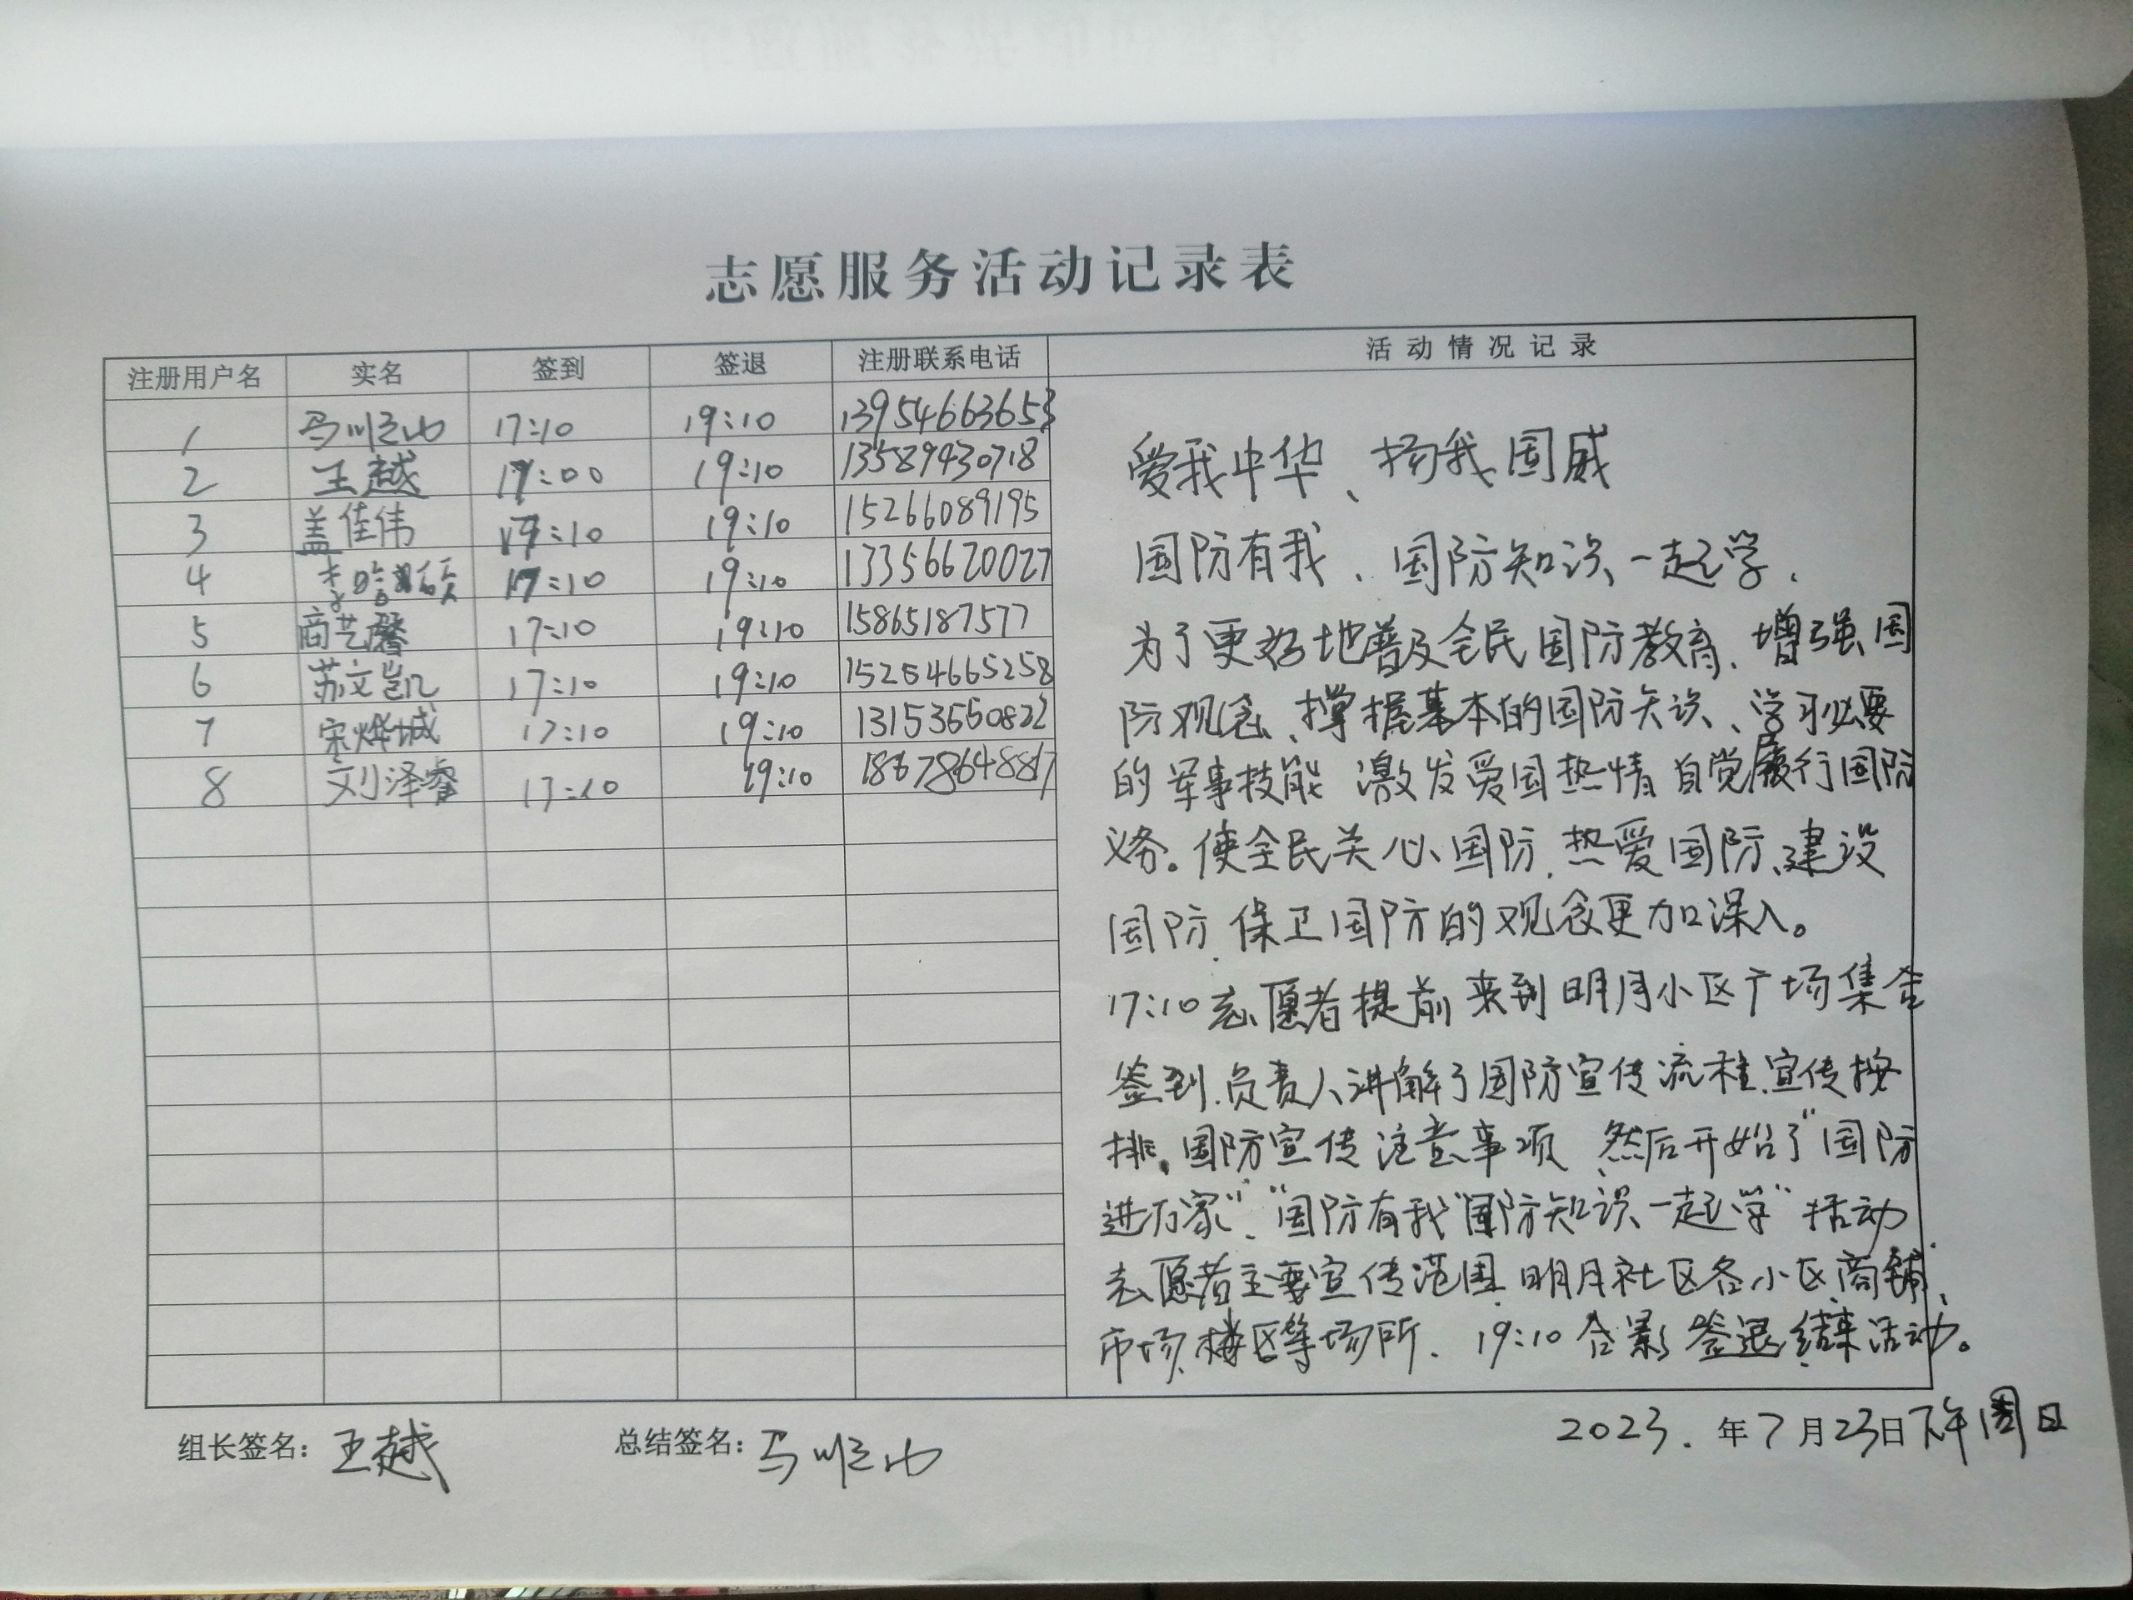 志愿服务活动记录表
注册用户名 实名 签到 签退 注册联系电话 活动情况记录
1 17:10 19:10 13954663653
2 王越 17:00 19:10 13589430718
3 盖佳伟 17:10 19:10 15266089195
4 17:10 19:10 13356620027
5 商艺馨 17:10 19:10 15865187577
6 苏文凯 17:10 19:10 15254665258
7 宋烨城 17:10 19:10
8 刘泽睿 17:10 19:10
爱我中华、扬我国威
国防有我、国防知识一起学.
为了更好地普及全民国防教育、增强国
防观念、掌握基本的国防知识、学习必要
的军事技能 激发爱国热情 自觉履行国防
义务。使全民关心国防.热爱国防、建设
国防.保卫国防的观念更加深入。
17:10志愿者提前来到明月小区广场集合
签到.负责人讲解了国防宣传流程.宣传按
排.国防宣传注意事项.然后开始了“国防
进万家”、“国防有我国防知识一起学”活动
志愿者主要宣传范围.明月社区各小区.商铺、
市场.楼区等场所. 19:10合影签退结束活动。
组长签名: 王越 总结签名: 2023.年7月23日下午周日